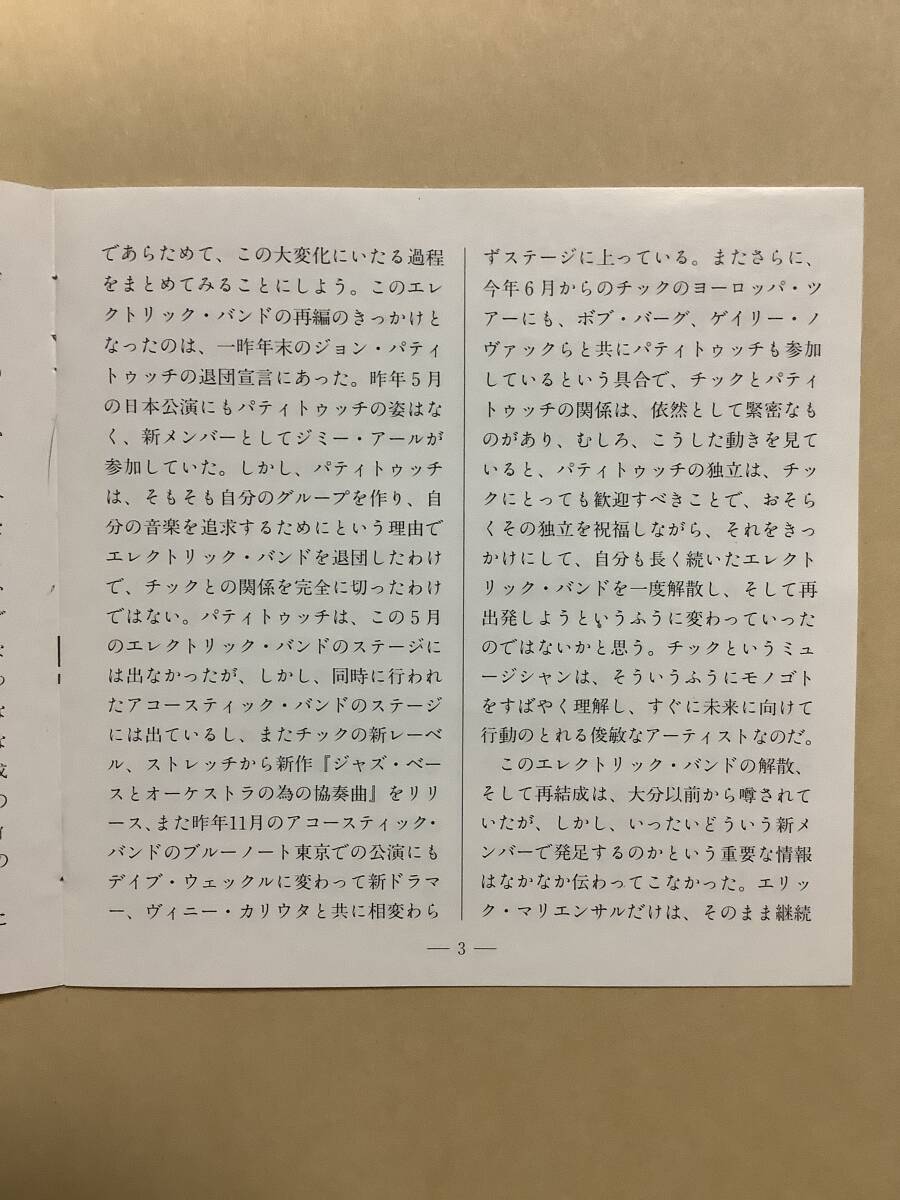 であらためて、この大変化にいたる過程
をまとめてみることにしよう。このエレ
クトリック・バンドの再編のきっかけと
なったのは、一昨年末のジョン・パティ
トゥッチの退団宣言にあった。昨年5月
の日本公演にもパティトゥッチの姿はな
く、新メンバーとしてジミー・アールが
参加していた。しかし、パティトゥッチ
は、そもそも自分のグループを作り、自
分の音楽を追求するためにという理由で
エレクトリック・バンドを退団したわけ
で、チックとの関係を完全に切ったわけ
ではない。パティトゥッチは、この5月
のエレクトリック・バンドのステージに
は出なかったが、しかし、同時に行われ
たアコースティック・バンドのステージ
には出ているし、またチックの新レーベ
ル、ストレッチから新作『ジャズ・ベー
スとオーケストラの為の協奏曲』をリリ
ース、また昨年11月のアコースティック・
バンドのブルーノート東京での公演にも
デイブ・ウェックルに変わって新ドラマ
ー、ヴィニー・カリウタと共に相変わら
ずステージに上っている。またさらに、
今年6月からのチックのヨーロッパ・ツ
アーにも、ボブ・バーグ、ゲイリー・ノ
ヴァックらと共にパティトゥッチも参加
しているという具合で、チックとパティ
トゥッチの関係は、依然として緊密なも
のがあり、むしろ、こうした動きを見て
いると、パティトゥッチの独立は、チッ
クにとっても歓迎すべきことで、おそら
くその独立を祝福しながら、それをきっ
かけにして、自分も長く続いたエレクト
リック・バンドを一度解散し、そして再
出発しようというふうに変わっていった
のではないかと思う。チックというミュ
ージシャンは、そういうふうにモノゴト
をすばやく理解し、すぐに未来に向けて
行動のとれる俊敏なアーティストなのだ。
このエレクトリック・バンドの解散、
そして再結成は、大分以前から噂されて
いたが、しかし、いったいどういう新メ
ンバーで発足するのかという重要な情報
はなかなか伝わってこなかった。エリッ
ク・マリエンサルだけは、そのまま継続
— 3 —